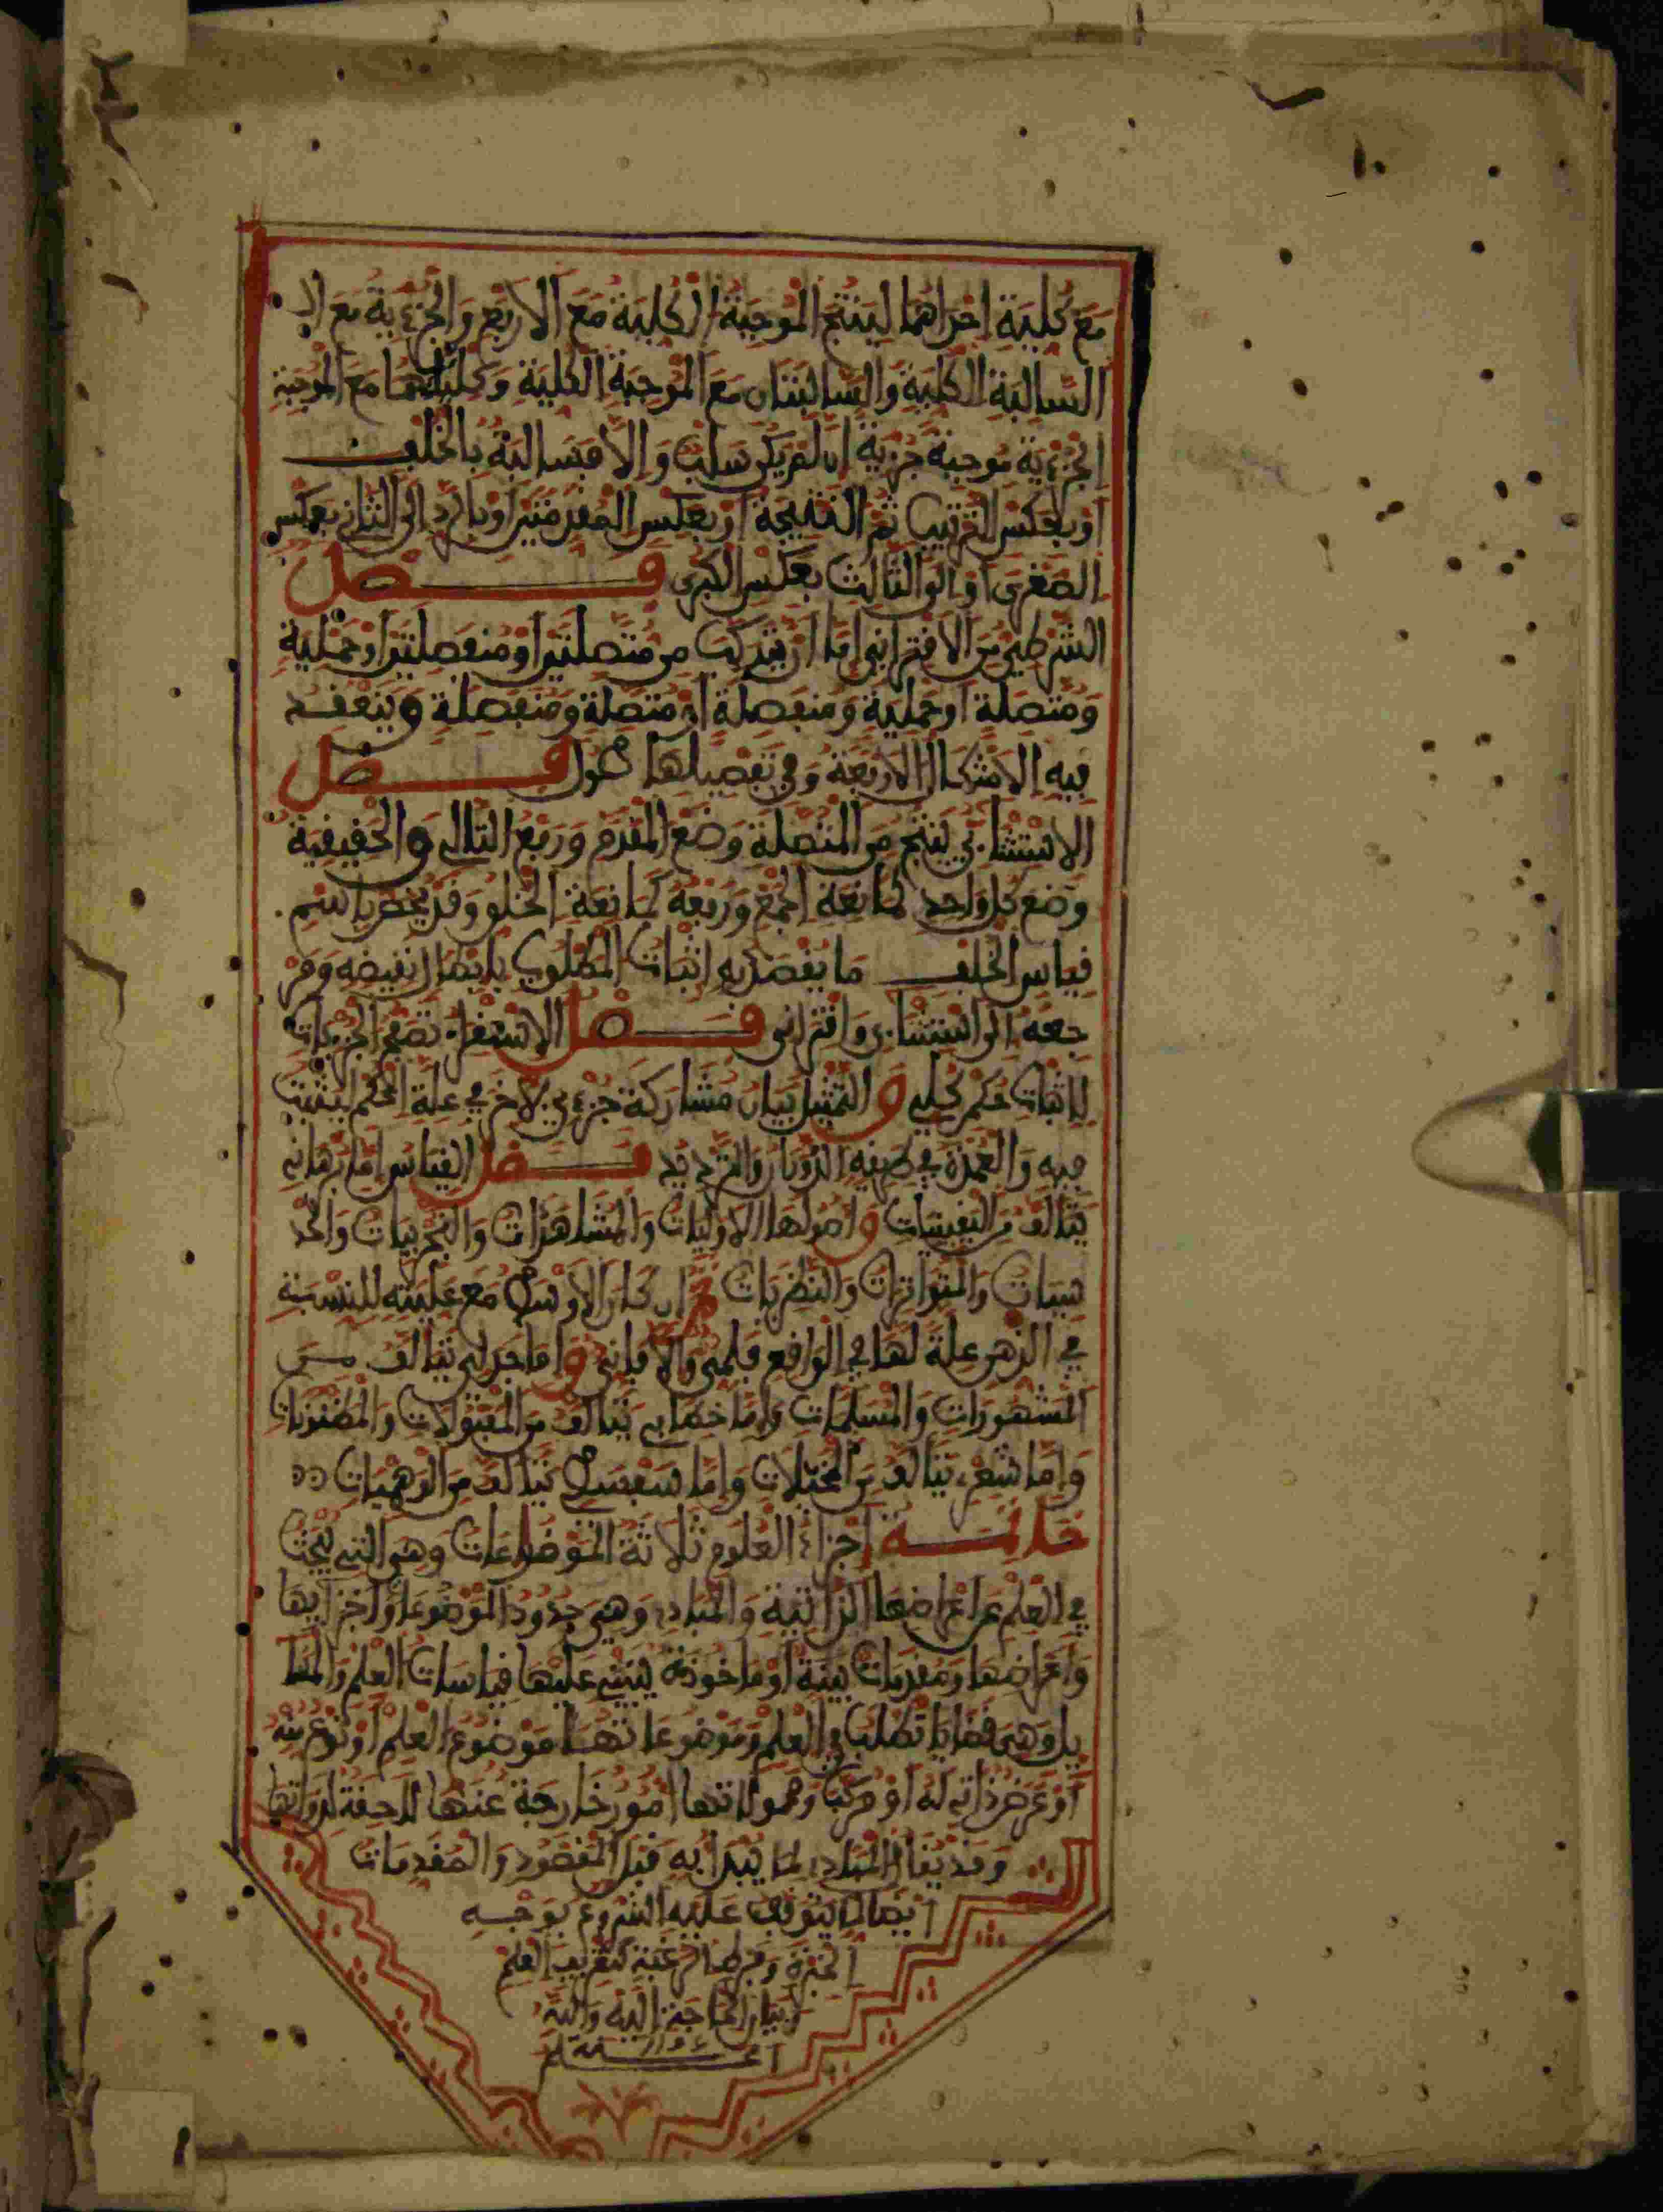 مع كلية احداهما لينتج الموجبة الكلية مع الاربع والجزءية مع
السالبة الكلية والسالبتان مع الموجبة الكلية وكليتهما مع الموجبة
الجزءية موجبة جزية ان لم يكن سلب والا فسالبة بالخلف
او بعكس الترتيب ثم النتيجة او بعكس المقدمتين او بالرد الى الثاني بعكس
الصغرى او الى الثالث بعكس الكبرى فصل
الشرطي من الاقتراني اما ان يتركب من متصلتين او منفصلتين او حملية
ومتصلة او حملية ومنفصلة او متصلة ومنفصلة وينعقد
فيه الاشكال الاربعة وفي تفصيلها طول فصل
الاستثناءي ينتج من المتصلة وضع المقدم ورفع التالي والحقيقية
وضع كل واحد كمانعة الجمع ورفعه كمانعة الخلو وقد يخص باسم
قياس الخلف ما يقصد به اثبات المطلوب بابطال نقيضه ومر
جعه الى استثناءي واقتراني فصل الاستقراء تصفح الجزءيات
لاثبات حكم كلي والتمثيل بيان مشاركة جزءي لاخر في علة الحكم ليثبت
فيه والعمدة في طريقه الدوران والترديد فصل القياس اما برهاني
يتالف من اليقينيات واصولها الاوليات والمشاهدات والتجربيات والحد
سيات والمتواترات والنظريات ثم ان كان الاوسط مع عليته للنسبة
في الذهن علة لها في الواقع فلمي والا فاني واما جدلي يتالف من
المشهورات والمسلمات واما خطابي يتالف من المقبولات والمظنونات
واما شعري يتالف من المخيلات واما سفسطي يتالف من الوهميات
خاتمة اجزاء العلوم ثلاثة الموضوعات وهي التي يبحث
في العلم عن اعراضها الذاتية والمبادي وهي حدود الموضوعات واجزايها
واعراضها ومقدمات بينة او ماخوذة يبتني عليها قياسات العلم والمسا
يل وهي قضايا تطلب في العلم وموضوعاتها موضوع العلم او نوع منه
او عرض ذاتي له او مركب ومحمولاتها امور خارجة عنها لاحقة لذواتها
وقد يقال المبادي لما يبدا به قبل المقصود والمقدمات
ايضا لما يتوقف عليه الشروع بوجه
الخبرة وفرط الرغبة كتعريف العلم
وبيان الحاجة اليه والله
اعلم